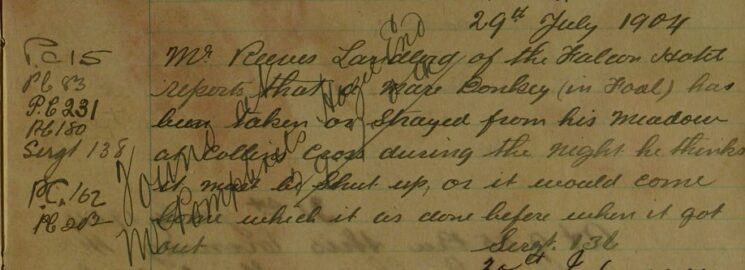 29th July 1904
P.C. 15
PC 83
P.C 231
PC 180
Sergt 138
P.C. 162
PC 202
Mr Reeves Landlord of the Falcon Hotel
reports that a Mare Donkey (in Foal) has
been taken or Strayed from his Meadow
at Collins Cross during the night he thinks
it must be shut up, or it would come
home which it as done before when it got
out Sergt. 136
Found at
Mr Hazel End